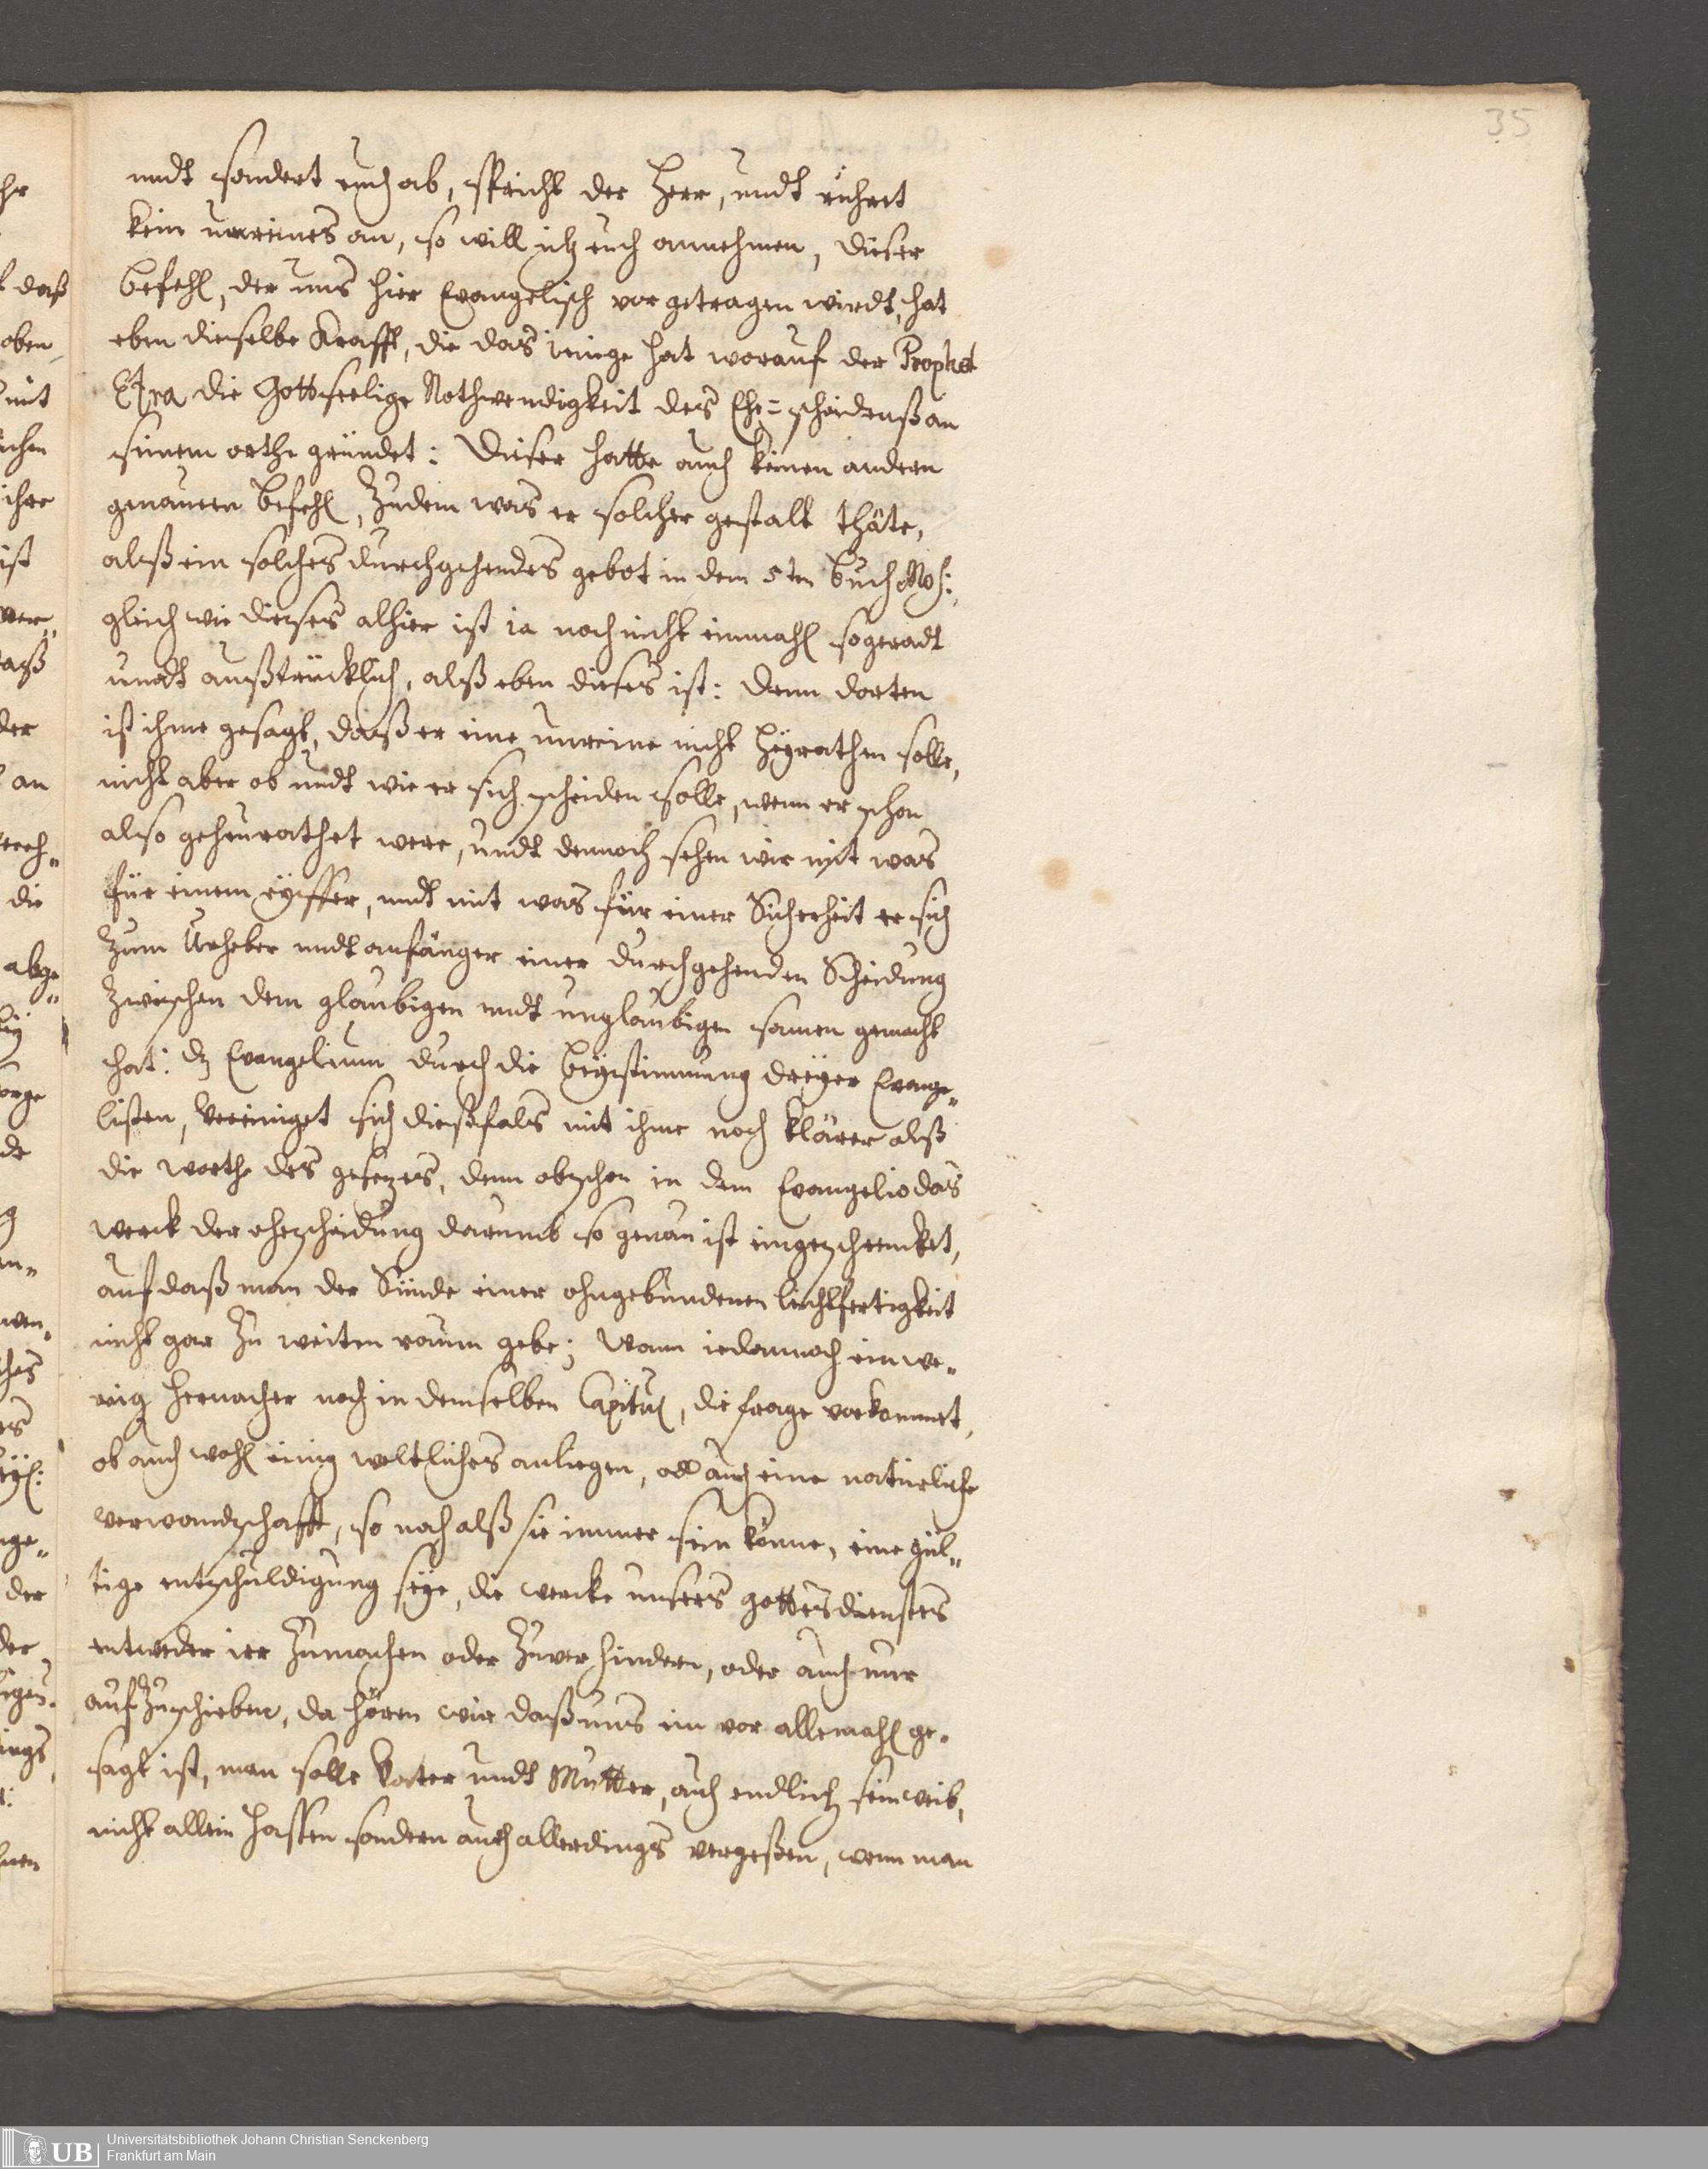 35
undt sondert euch ab, spricht der Herr, undt rühret
kein unreines an, so will ich euch annehmen, dieser
befehl, der uns hier Evangelisch vorgetragen wirdt, hat
eben dieselbe Krafft, die das ienige hat worauf der Prophet
Esra die Gottseelige Nothwendigkeit des Ehe=scheidenß an
seinem orthe gründet: Dieser hatte auch keinen andern
genauern befehl, zudem was er solcher gestalt thäte,
alß ein solches durchgehendes gebot in dem 5ten buch Mos:
gleich wie dieses alhier ist ia noch nicht einmahl so geradt
undt außtrücklich, alß eben dieses ist: denn dorten
ist ihme gesagt, daß er eine unreine nicht heyrathen solle,
nicht aber ob undt wie er sich scheiden solle, wenn er schon
also geheurathet were, undt dennoch sehen wir mit was
für einem eyffer, undt mit was für einer Sicherheit er sich
zum Urheber undt anfänger einer durchgehenden Scheidung
zwischen dem glaubigen undt unglaubigen samen gemacht
hat: dz Evangelium durch die beystimmung dreyer Evange„
listen, vereiniget sich dießfals mit ihme noch klärer alß
die worthe des gesezes, denn obschon in dem Evangelio das
werck der ehescheidung darumb so genau ist eingeschrencket,
auf daß man der Sünde einer ohngebundenen leichtfertigkeit
nicht gar zu weiten raum gebe; Wann iedannoch ein we„
nig hernacher noch in demselben Capitul, die frage vorkommet,
ob auch wohl einig weltliches anliegen, od auch eine natürliche
verwandschafft, so nach alß sie immer sein könne, eine gül„
tige entschuldigung seye, die wercke unsers gottesdienstes
entweder irr zumachen oder zuverhindern, oder auch nur
aufzuschieben, da hören wir daß uns ein vor allemahl ge„
sagt ist, man solle Vater undt Mutter, auch endlich sein weib,
nicht allein hassen sondern auch allerdings vergeßen, wenn man
UB
Universitätsbibliothek Johann Christian Senckenberg
Frankfurt am Main